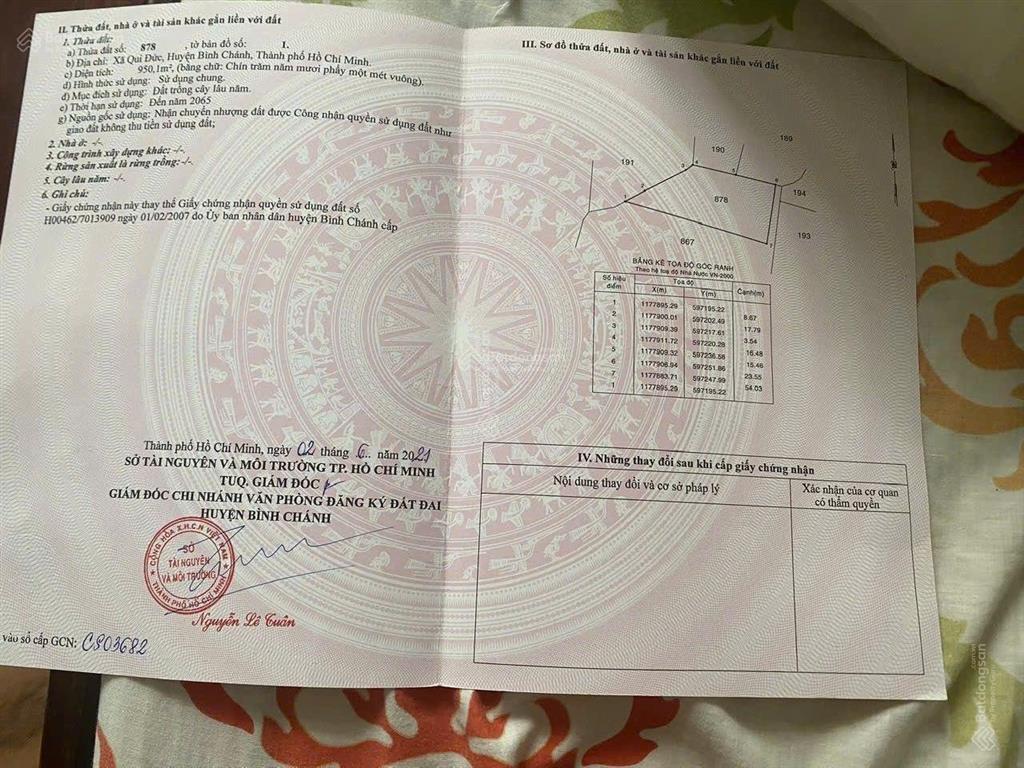 II. Thửa đất, nhà ở và tài sản khác gắn liền với đất
1. Thửa đất:
a) Thửa đất số: 878 , tờ bản đồ số: 1.
b) Địa chỉ: Xã Qui Đức, Huyện Bình Chánh, Thành phố Hồ Chí Minh.
c) Diện tích: 950,1m², (bằng chữ: Chín trăm năm mươi phẩy một mét vuông).
d) Hình thức sử dụng: Sử dụng chung.
đ) Mục đích sử dụng: Đất trồng cây lâu năm.
e) Thời hạn sử dụng: Đến năm 2065
g) Nguồn gốc sử dụng: Nhận chuyển nhượng đất được Công nhận quyền sử dụng đất như
giao đất không thu tiền sử dụng đất;
2. Nhà ở: -/-.
3. Công trình xây dựng khác: -/-.
4. Rừng sản xuất là rừng trồng: -/-.
5. Cây lâu năm: -/-.
6. Ghi chú:
- Giấy chứng nhận này thay thế Giấy chứng nhận quyền sử dụng đất số
H00462/7013909 ngày 01/02/2007 do Ủy ban nhân dân huyện Bình Chánh cấp
Thành phố Hồ Chí Minh, ngày 02 tháng 6.. năm 2021
SỞ TÀI NGUYÊN VÀ MÔI TRƯỜNG TP. HỒ CHÍ MINH
TUQ. GIÁM ĐỐC
GIÁM ĐỐC CHI NHÁNH VĂN PHÒNG ĐĂNG KÝ ĐẤT ĐAI
HUYỆN BÌNH CHÁNH
CỘNG HÒA X.H.C.N VIỆT NAM
SỞ
TÀI NGUYÊN
VÀ MÔI TRƯỜNG
THÀNH PHỐ HỒ CHÍ MINH
Nguyễn Lê Tuấn
vào sổ cấp GCN: CS03682
III. Sơ đồ thửa đất, nhà ở và tài sản khác gắn liền với đất
189
190
191
194
193
878
867
1
2
3
4
5
6
7
BẢNG KÊ TỌA ĐỘ GÓC RANH
Theo hệ toạ độ Nhà Nước VN-2000
Số hiệu điểm Tọa độ Cạnh(m)
X(m) Y(m)
1 1177895.29 597195.22
8.67
2 1177900.01 597202.49
17.79
3 1177909.39 597217.61
3.54
4 1177911.72 597220.28
16.48
5 1177909.32 597236.58
15.46
6 1177906.94 597251.86
23.55
7 1177883.71 597247.99
54.03
1 1177895.29 597195.22
IV. Những thay đổi sau khi cấp giấy chứng nhận
Nội dung thay đổi và cơ sở pháp lý
Xác nhận của cơ quan
có thẩm quyền
Batdongsan
Batdongsan